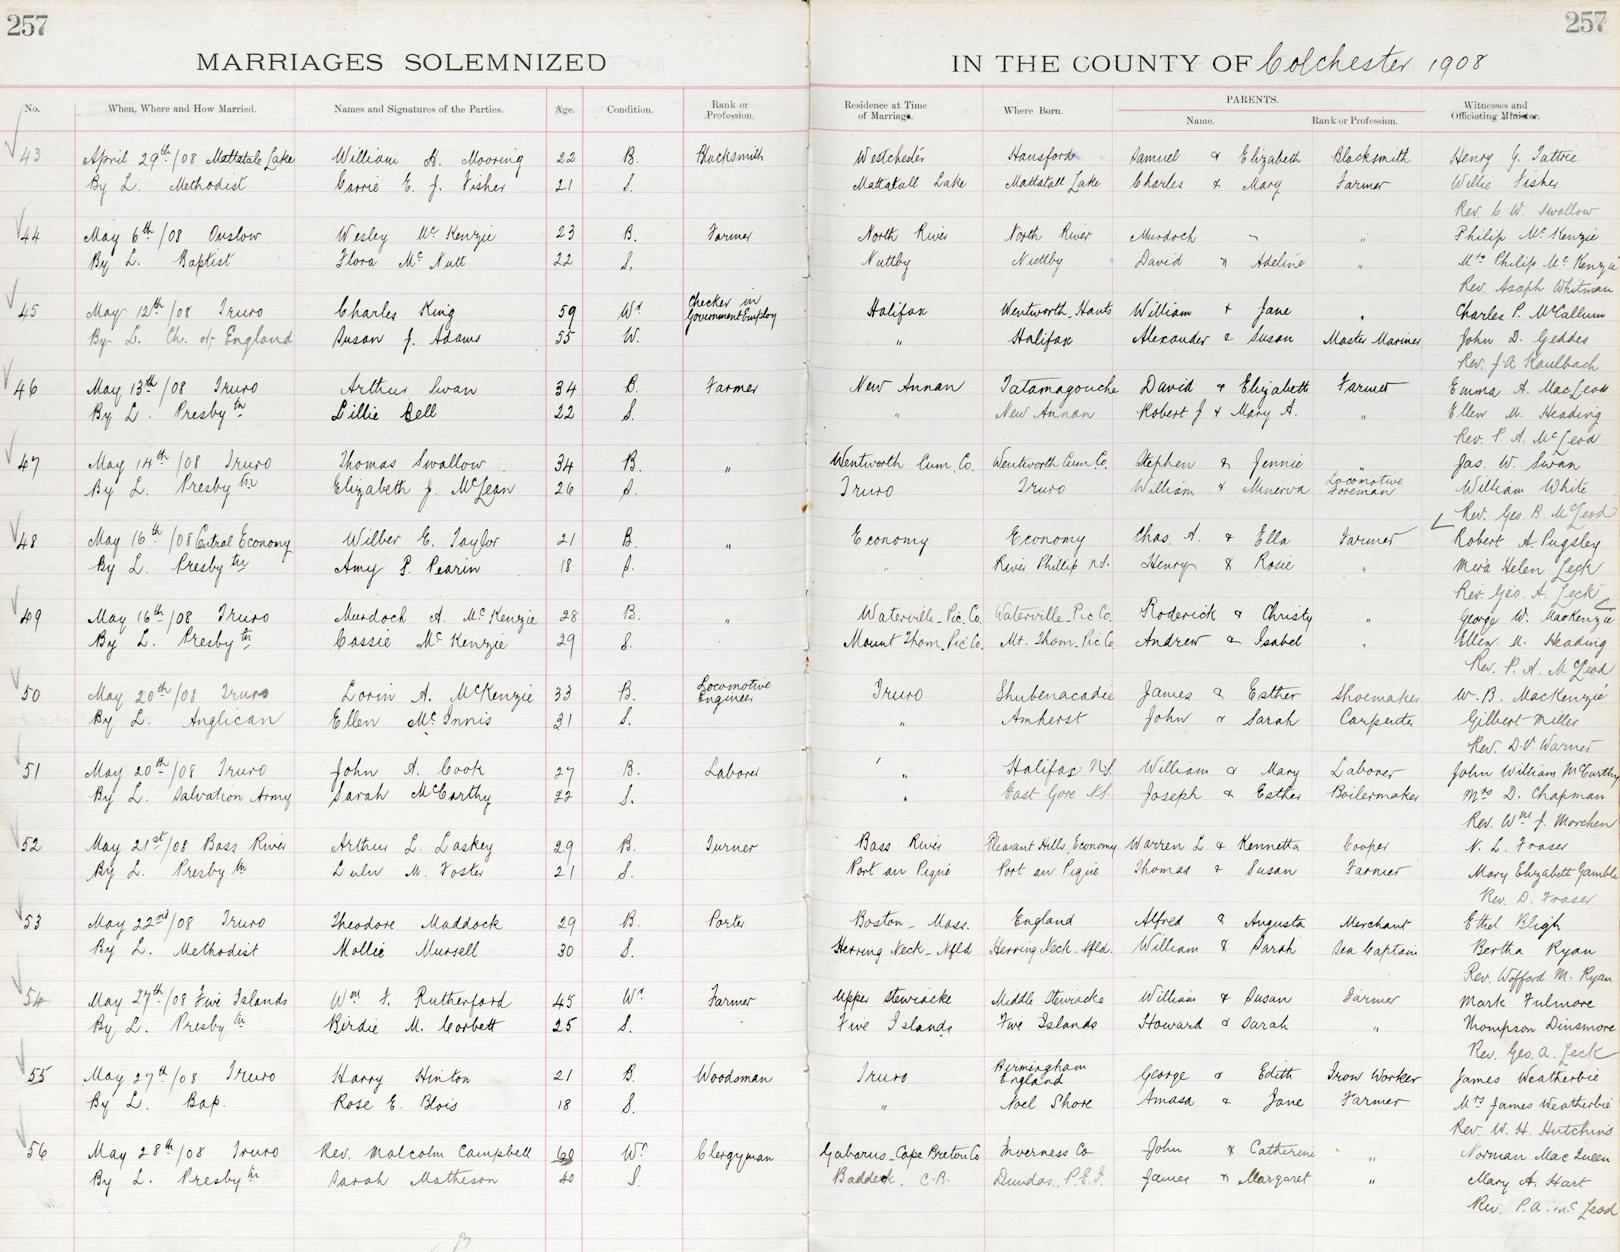 257
257
MARRIAGES SOLEMNIZED IN THE COUNTY OF Colchester 1908
No. When, Where and How Married. Names and Signatures of the Parties. Age. Condition. Rank or Profession. Residence at Time of Marriage. Where Born. PARENTS. Name. Rank or Profession. Witnesses and Officiating Minister.
43 April 29th/08 Mattatale Lake William H. Mooring 22 B. Blacksmith Westchester Hansford Samuel & Elizabeth Blacksmith Henry G. Tattrie
By L. Methodist Carrie E. J. Fisher 21 S. Mattatall Lake Mattatall Lake Charles & Mary Farmer Willie Fisher
Rev. C. W. Swallow
44 May 6th/08 Onslow Wesley McKenzie 23 B. Farmer North River North River Murdoch - " Philip McKenzie
By L. Baptist Flora McNutt 22 S. Nuttby Nuttby David & Adeline " Mrs Philip McKenzie
Rev. Asaph Whitman
45 May 12th/08 Truro Charles King 59 Wr Checker in Government Employ Halifax Wentworth Hants William & Jane " Charles P. McCallum
By L. Ch. of England Susan J. Adams 55 W. " Halifax Alexander & Susan Master Mariner John D. Geddes
Rev. J. A. Kaulbach
46 May 13th/08 Truro Arthur Swan 34 B. Farmer New Annan Tatamagouche David & Elizabeth Farmer Emma A. MacLeod
By L. Presbytn Lillie Bell 22 S. " New Annan Robert J & Mary A. " Ellen M. Heading
Rev. P. A. McLeod
47 May 14th/08 Truro Thomas Swallow 34 B. " Wentworth Cum. Co. Wentworth Cum Co. Stephen & Jennie " Jas. W. Swan
By L. Presbytn Elizabeth J. McLean 26 S. Truro Truro William & Minerva Locomotive Foreman William White
Rev. Geo. B. McLeod
48 May 16th/08 Central Economy Wilber E. Taylor 21 B. " Economy Economy Chas. A. & Ella Farmer Robert A. Pugsley
By L. Presbytn Amy P. Pearin 18 S. " River Phillip N.S. Henry & Rosie " Helen Leck
Rev. Geo. A. Leck
49 May 16th/08 Truro Murdoch A. McKenzie 28 B. " Waterville Pic. Co. Waterville Pic Co. Roderick & Christy " George W. MacKenzie
By L. Presbytn Cassie McKenzie 29 S. Mount Thom Pic Co. Mt. Thom Pic Co Andrew & Isabel " Ellen M. Heading
Rev. P. A. McLeod
50 May 20th/08 Truro Lorin A. McKenzie 33 B. Locomotive Engineer Truro Shubenacadie James & Esther Shoemaker W. B. MacKenzie
By L. Anglican Ellen McInnis 31 S. " Amherst John & Sarah Carpenter Gilbert Miller
Rev. D. V. Warner
51 May 20th/08 Truro John A. Cook 27 B. Laborer " Halifax N.S. William & Mary Laborer John William McCarthy
By L. Salvation Army Sarah McCarthy 22 S. " East Gore N.S. Joseph & Esther Boilermaker Mrs D. Chapman
Rev. Wm J. Morehen
52 May 21st/08 Bass River Arthur L. Laskey 29 B. Turner Bass River Pleasant Hills, Economy Warren L. & Kennetta Cooper N. L. Fraser
By L. Presbytn Lulu M. Foster 21 S. Port au Pique Port au Pique Thomas & Susan Farmer Mary Elizabeth Gamble
Rev. D. Fraser
53 May 22nd/08 Truro Theodore Maddock 29 B. Porter Boston - Mass. England Alfred & Augusta Merchant Ethel Bligh
By L. Methodist Mollie Mursell 30 S. Herring Neck - Nfld Herring Neck - Nfld. William & Sarah Sea Captain Bertha Ryan
Rev. Wofford M. Ryan
54 May 27th/08 Five Islands Wm F. Rutherford 45 Wr Farmer Upper Stewiacke Middle Stewiacke William & Susan Farmer Mark Fulmore
By L. Presbytn Birdie M. Corbett 25 S. Five Islands Five Islands Howard & Sarah " Thompson Dinsmore
Rev. Geo. A. Leck
55 May 27th/08 Truro Harry Hinton 21 B. Woodsman Truro Birmingham England George & Edith Iron Worker James Weatherbie
By L. Bap. Rose E. Blois 18 S. " Noel Shore Amasa & Jane Farmer Mrs James Weatherbie
Rev. W. H. Hutchins
56 May 28th/08 Truro Rev. Malcolm Campbell 60 Wr Clergyman Gabarus - Cape Breton Co Inverness Co John & Catherine " Norman MacQueen
By L. Presbytn Sarah Matheson 40 S. Baddeck. C.B. Dundas, P.E.I. James & Margaret " Mary A. Hart
Rev. P. A. McLeod